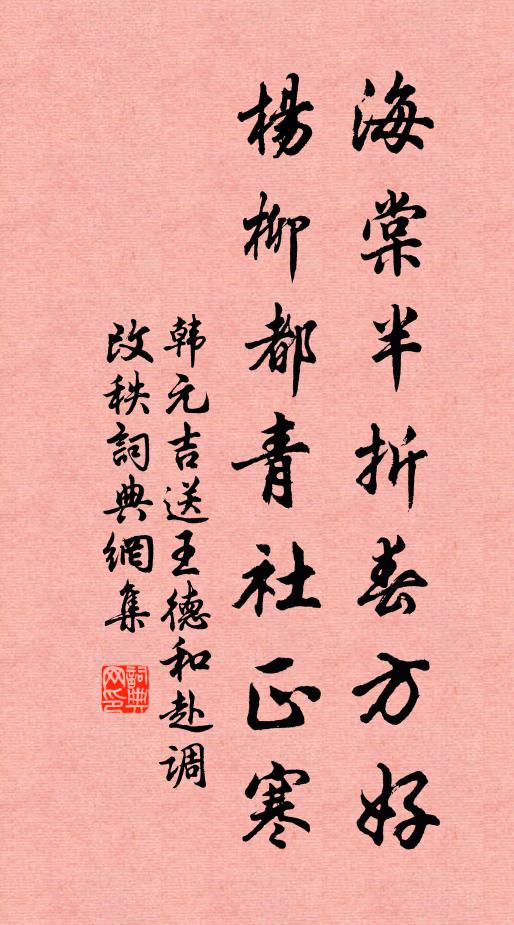 海棠半折春方好
楊柳都青社正寒
韩元吉送王德和赴调
改秩詞典網集
詞典網印